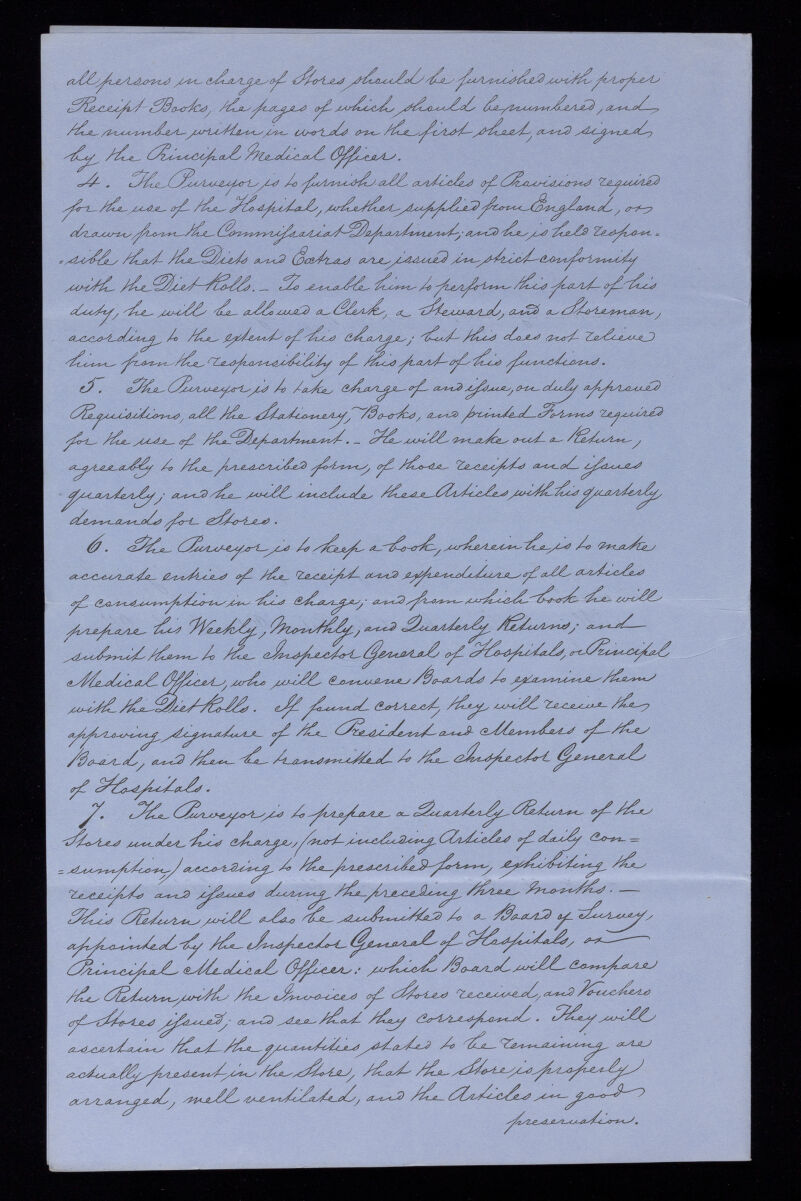 all persons in charge of Stores should be furnished with proper
Receipt Books, the pages of which should be numbered, and
the number written in words on the first sheet, and signed
by the Principal Medical Officer.
4. The Purveyor is to furnish all articles of Provisions required
for the use of the Hospital, whether supplied from England, or
drawn from the Commiſsariat Department; and he is held respon=
=sible that the Diets and Extras are issued in strict conformity
with the Diet Rolls. – To enable him to perform this part of his
duty, he will be allowed a Clerk, a Steward, and a Storeman,
according to the extent of his charge; but this does not relieve
him from the responsibility of this part of his functions.
5. The Purveyor is to take charge of and iſsue, on duly approved
Requisitions, all the Stationery, Books, and printed Forms required
for the use of the Department. – He will make out a Return,
agreeably to the prescribed form, of those receipts and iſsues
quarterly; and he will include these Articles with his quarterly
demands for Stores.
6. The Purveyor is to keep a book, wherein he is to make
accurate entries of the receipt and expenditure of all articles
of consumption in his charge; and from which book he will
prepare his Weekly, Monthly, and Quarterly Returns; and
submit them to the Inspector General of Hospitals, or Principal
Medical Officer, who will convene Boards to examine them
with the Diet Rolls. If found correct, they will receive the
approving signature of the President and Members of the
Board, and then be transmitted to the Inspector General
of Hospitals.
7. The Purveyor is to prepare a Quarterly Return of the
Stores under his charge, (not including Articles of daily con=
=sumption) according to the prescribed form, exhibiting the
receipts and iſsues during the preceding three months. –
This Return will also be submitted to a Board of Survey,
appointed by the Inspector General of Hospitals, or
Principal Medical Officer: which Board will compare
the Return with the Invoices of Stores received, and Vouchers
of Stores iſsued; and see that they correspond. They will
ascertain that the quantities stated to be remaining are
actually present in the Store, that the Store is properly
arranged, well ventilated, and the Articles in good
preservation.